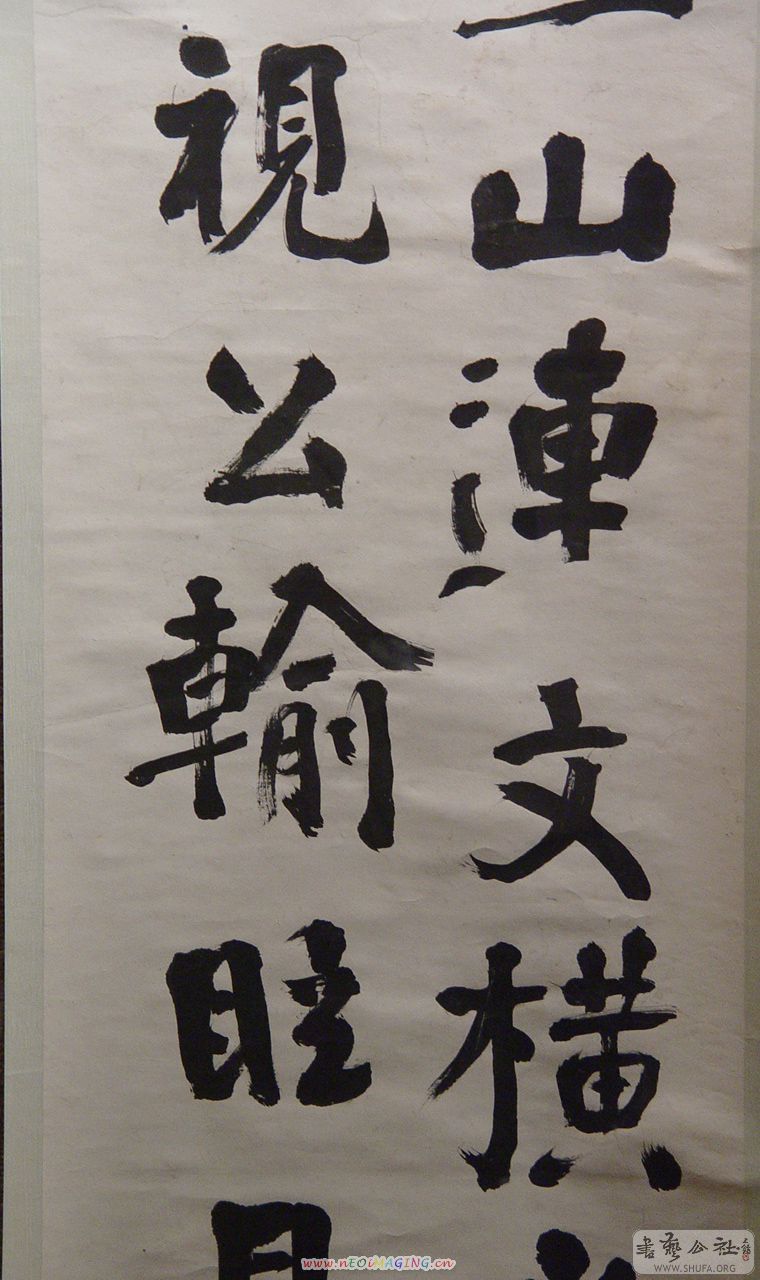 山連文橫
視公輸
www.nEOiMAGING.cn
書藝公社
WWW.SHUFA.ORG